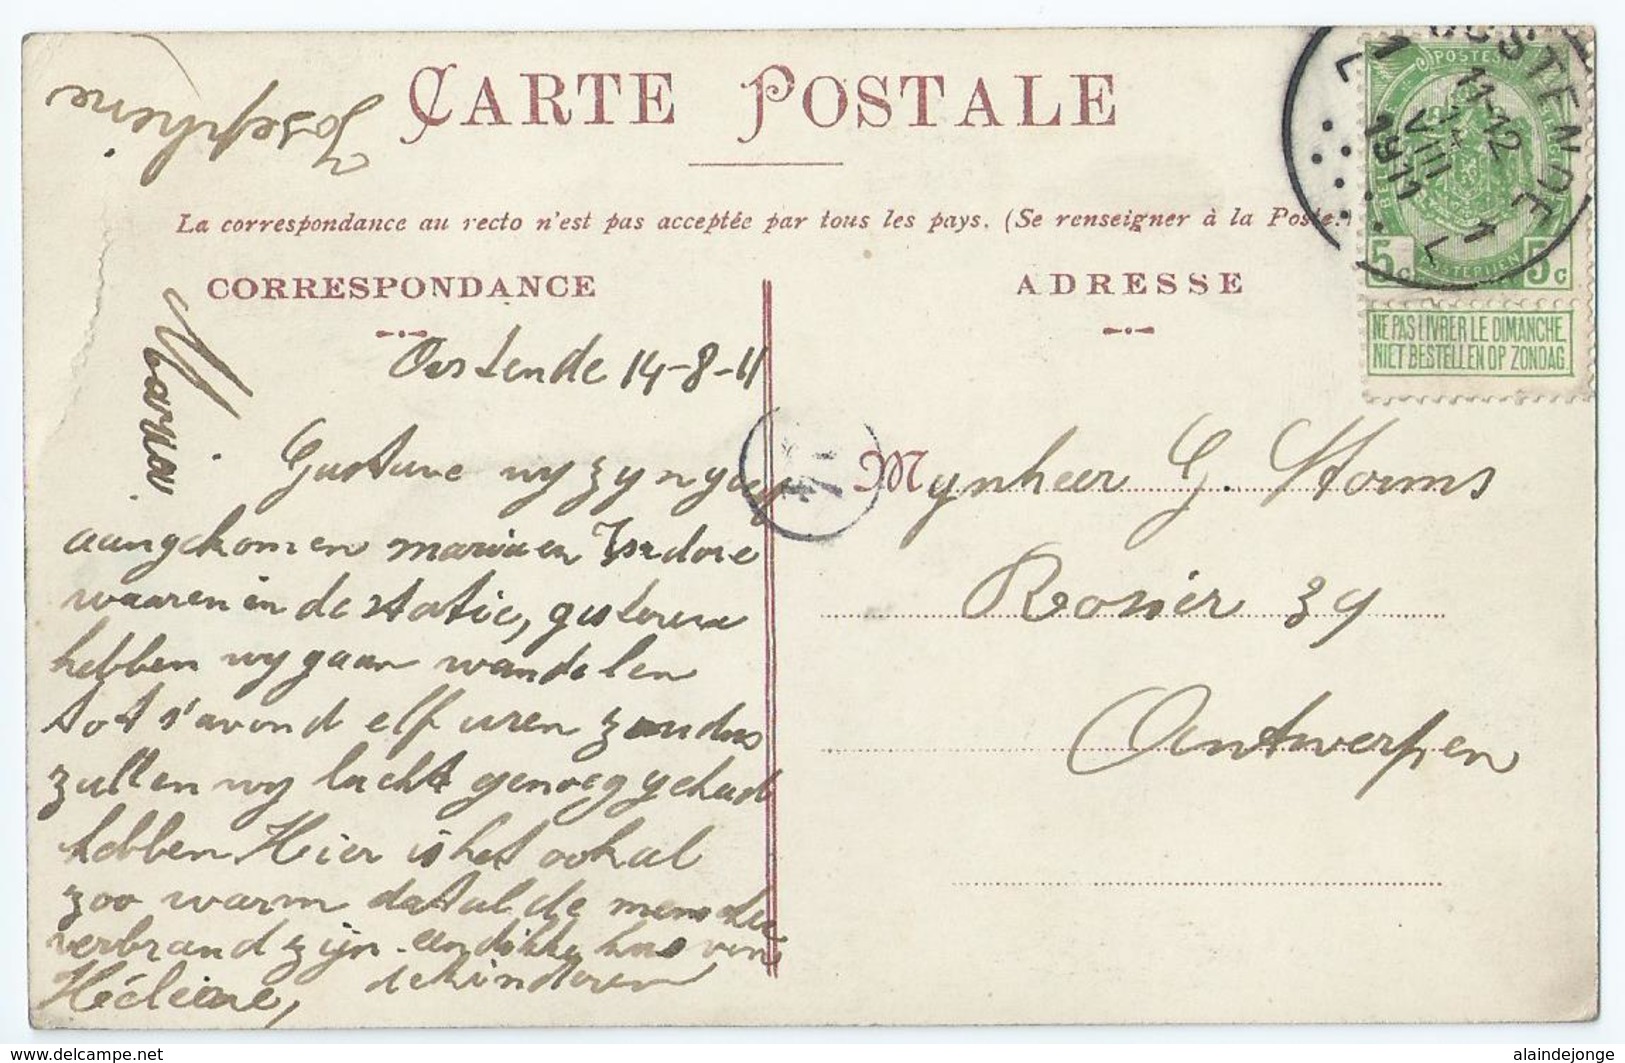 Josephine
CARTE POSTALE
La correspondance au recto n'est pas acceptée par tous les pays. (Se renseigner à la Poste.)
CORRESPONDANCE
ADRESSE
OOSTENDE
1 L
11-12
14
VIII
1911
L 1
POSTES
BELGIQUE
POSTERIJEN
5c
5c
NE PAS LIVRER LE DIMANCHE
NIET BESTELLEN OP ZONDAG
Oostende 14-8-11
Maria.
Gustave wy zyn goed
aangekomen maria en Isidore
waaren in de statie, gisteren
hebben wy gaan wandelen
tot s'avond elf uren zondus
zullen wy lucht genoeg gehad
hebben Hier is het ook al
zoo warm dat al de menschen
verbrand zijn een dikke kus van
de kinderen
Héliene,
Mynheer G. Storms
Rosier 39
Antwerpen
www.delcampe.net
alaindejonge